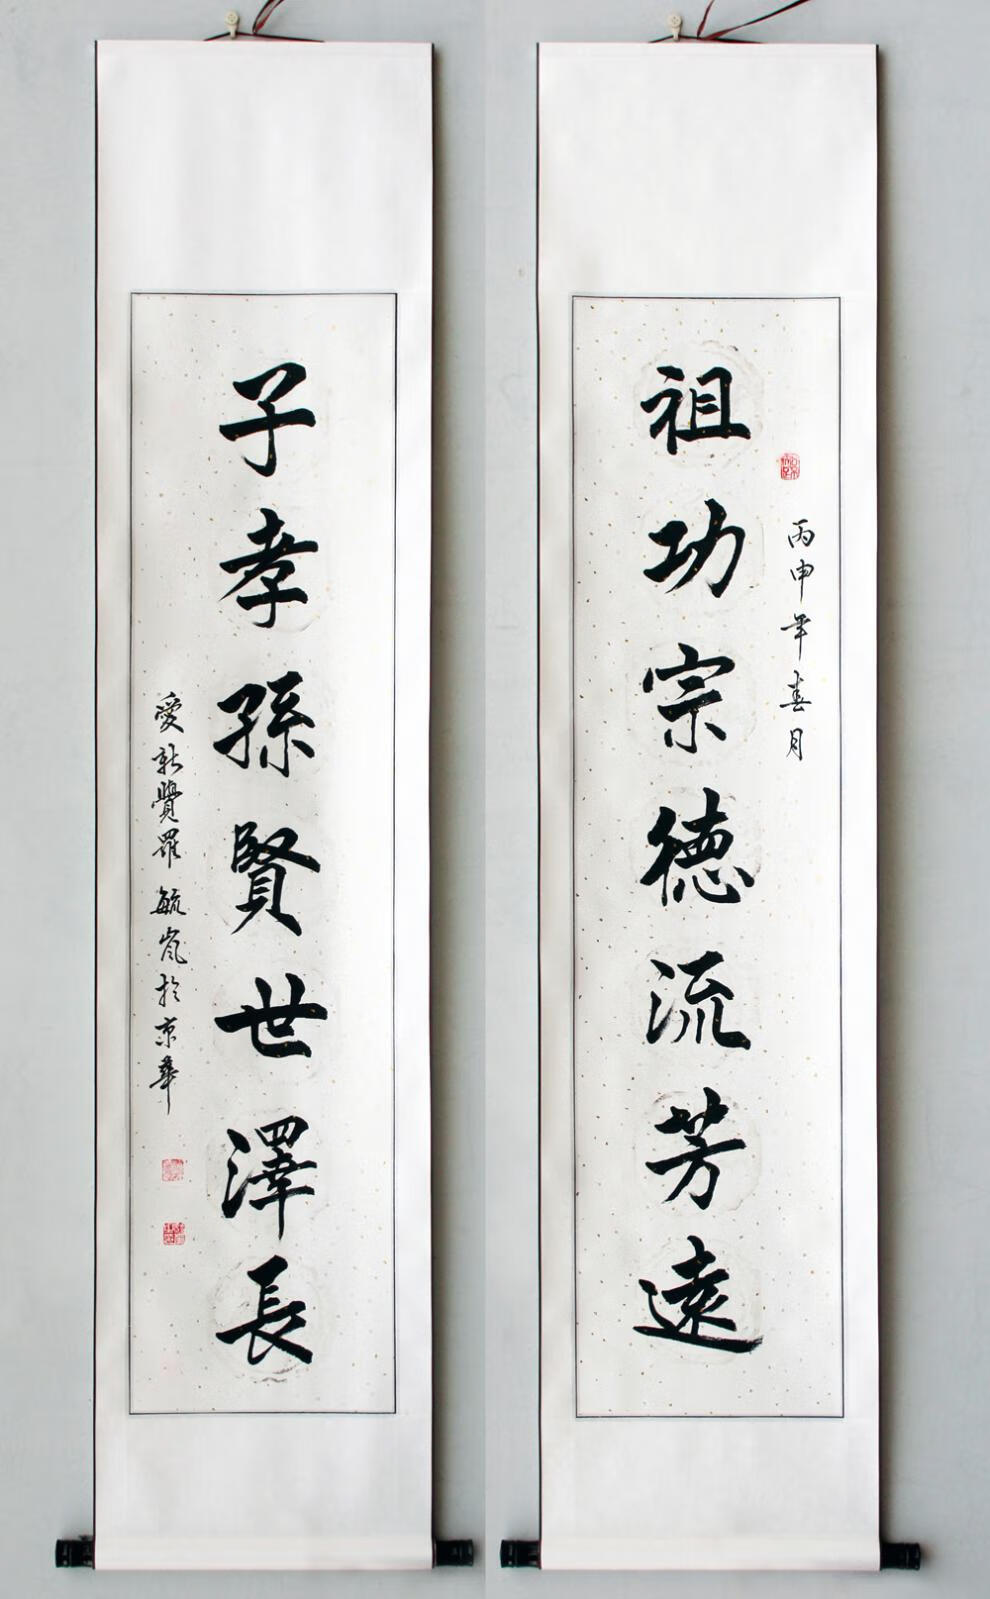 丙申年春月
祖功宗德流芳遠
子孝孫賢世澤長
愛新覺羅 毓嵐於京華